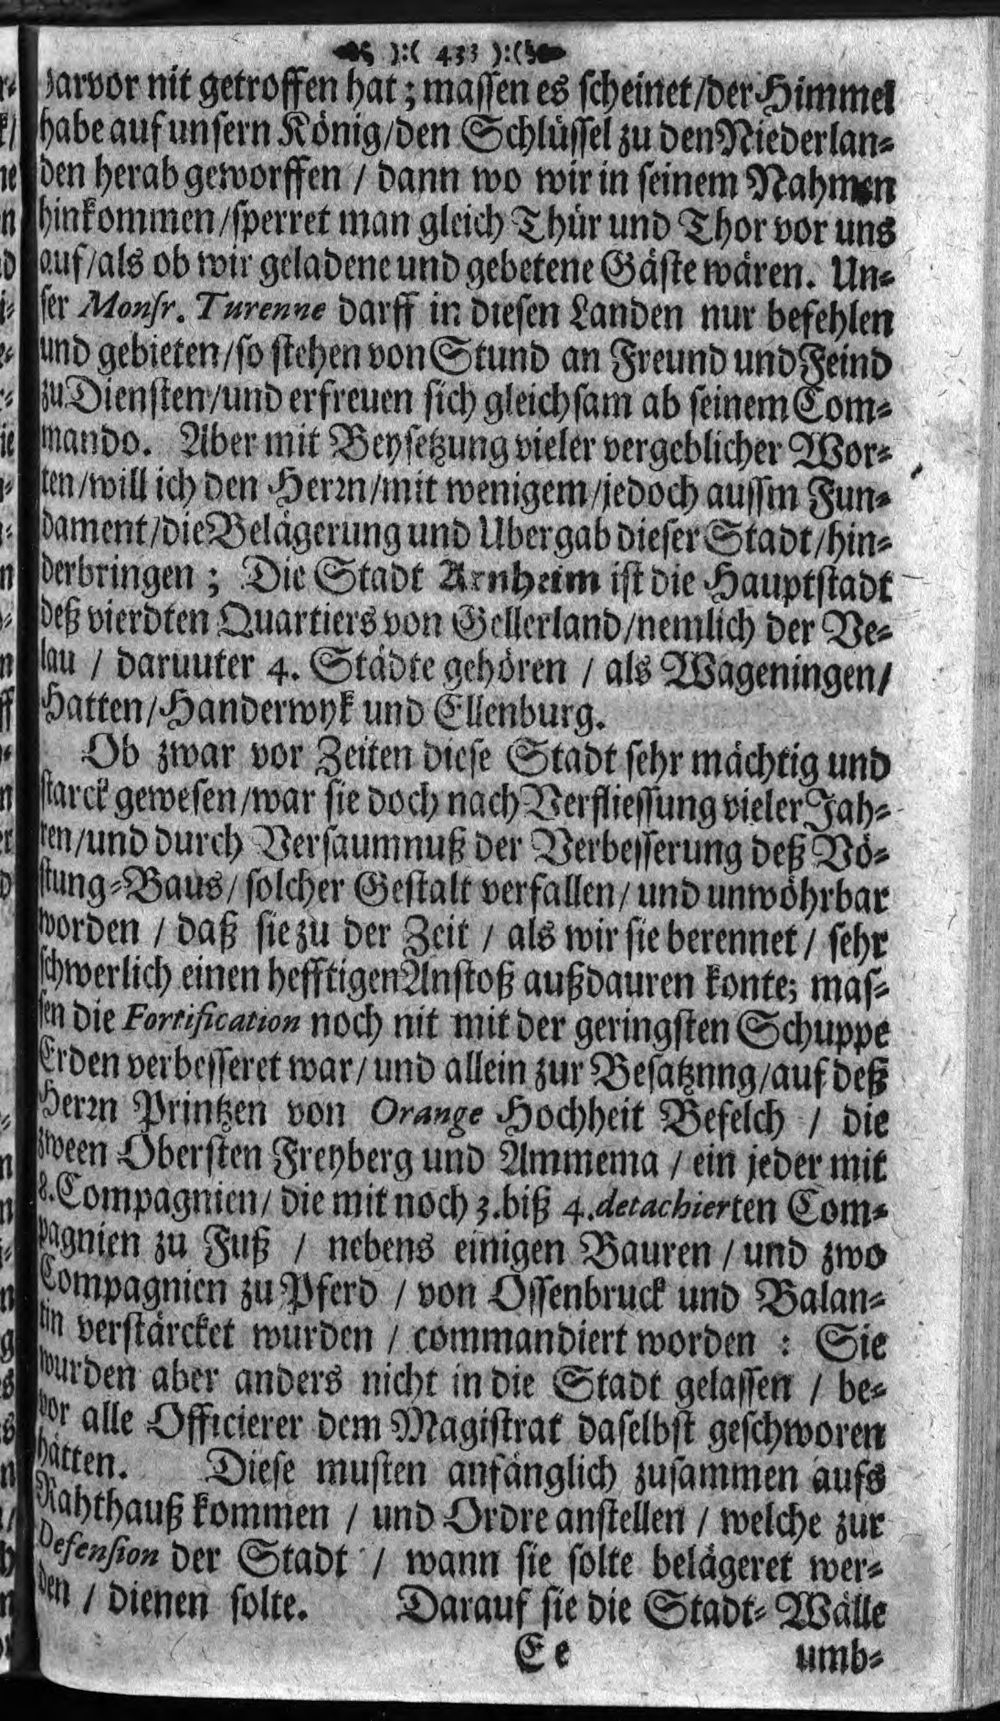 ):( 433 ):(
darvor nit getroffen hat; massen es scheinet/der Himmel
habe auf unsern König/den Schlüssel zu den Niederlan-
den herab geworffen / dann wo wir in seinem Nahmen
hinkommen/sperret man gleich Thür und Thor vor uns
auf/als ob wir geladene und gebetene Gäste wären. Un-
ser Monsr. Turenne darff in diesen Landen nur befehlen
und gebieten/so stehen von Stund an Freund und Feind
zu Diensten/und erfreuen sich gleichsam ab seinem Com-
mando. Aber mit Beysetzung vieler vergeblicher Wor-
ten/will ich den Herrn/mit wenigem/jedoch aussm Fun-
dament/die Belägerung und Ubergab dieser Stadt/hin-
derbringen; Die Stadt Arnheim ist die Hauptstadt
deß vierdten Quartiers von Gellerland/nemlich der Ve-
lau / daruuter 4. Städte gehören / als Wageningen/
Hatten/Handerwyk und Ellenburg.
Ob zwar vor Zeiten diese Stadt sehr mächtig und
starck gewesen/war sie doch nach Verfliessung vieler Jah-
ren/und durch Versaumnuß der Verbesserung deß Vö-
stung-Baus/ solcher Gestalt verfallen/ und unwöhrbar
worden / daß sie zu der Zeit / als wir sie berennet / sehr
schwerlich einen hefftigen Anstoß außdauren konte; mas-
sen die Fortification noch nit mit der geringsten Schuppe
Erden verbesseret war/ und allein zur Besatznng/auf deß
Herrn Printzen von Orange Hochheit Befelch / die
zween Obersten Freyberg und Ammema / ein jeder mit
8. Compagnien/ die mit noch 3. biß 4. detachierten Com-
pagnien zu Fuß / nebens einigen Bauren / und zwo
Compagnien zu Pferd / von Ossenbruck und Balan-
tin verstärcket wurden / commandiert worden : Sie
wurden aber anders nicht in die Stadt gelassen / be-
vor alle Officierer dem Magistrat daselbst geschworen
hätten. Diese musten anfänglich zusammen aufs
Rahthauß kommen / und Ordre anstellen / welche zur
Defension der Stadt / wann sie solte belägeret wer-
den / dienen solte. Darauf sie die Stadt-Wälle
Ee umb-